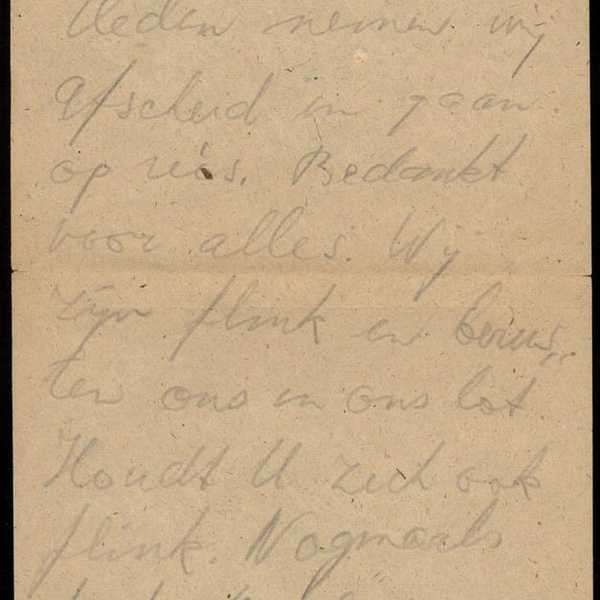 Heden nemen wij
afscheid en gaan
op reis. Bedankt
voor alles. Wij
zijn flink en berus„
ten ons in ons lot.
Houdt U zich ook
flink. Nogmaals